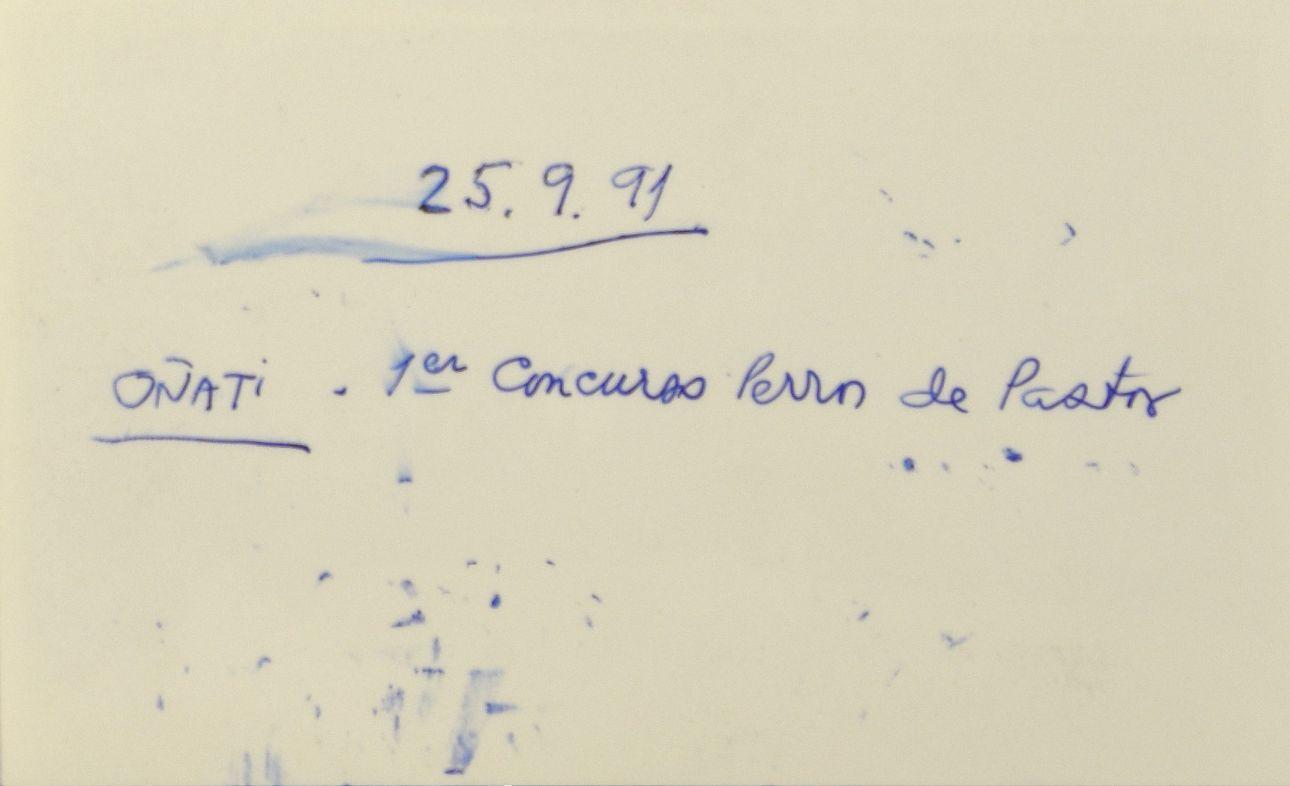 25.9.91
OÑATI . 1er Concurso Perros de Pastor